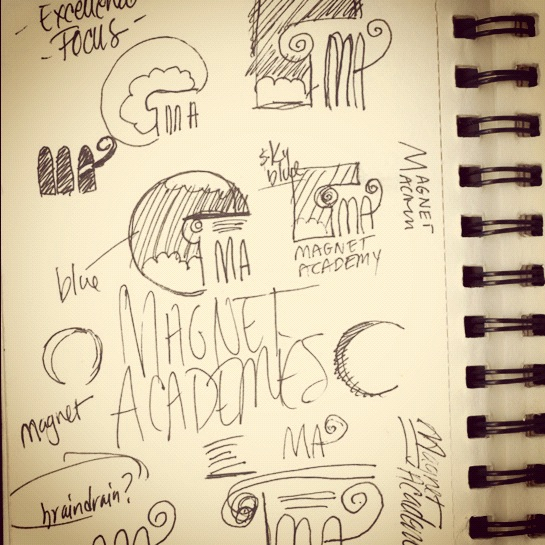 Excellence
- FOCUS -
MA
MA
MA
sky
blue
MAGNET
MA
MAGNET
ACADEMY
MA
blue
MAGNET
ACADEMIES
magnet
MA
Magnet
braindrain?
MA